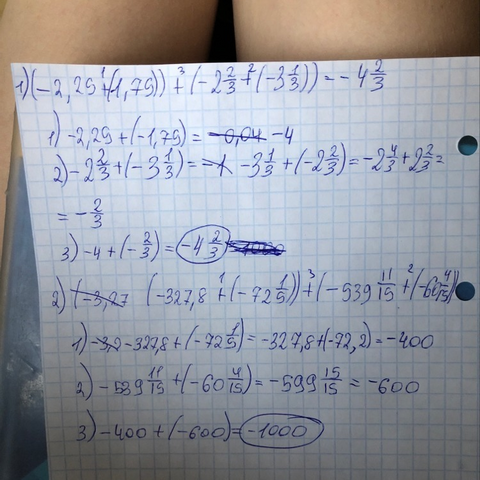 1) (-2,25 + (1,75)) + (-2 2/3 + (-3 1/3)) = -4 2/3
1) -2,25 + (-1,75) = -0,04 -4
2) -2 2/3 + (-3 1/3) = -1 -3 1/3 + (-2 2/3) = -2 4/3 + 2 2/3 =
= -2/3
3) -4 + (-2/3) = -4 2/3
2) (-3,27 (-327,8 + (-72 1/5)) + (-539 11/15 + (-60 4/15))
1) -3,2 -327,8 + (-72 1/5) = -327,8 + (-72,2) = -400
2) -539 11/15 + (-60 4/15) = -599 15/15 = -600
3) -400 + (-600) = -1000